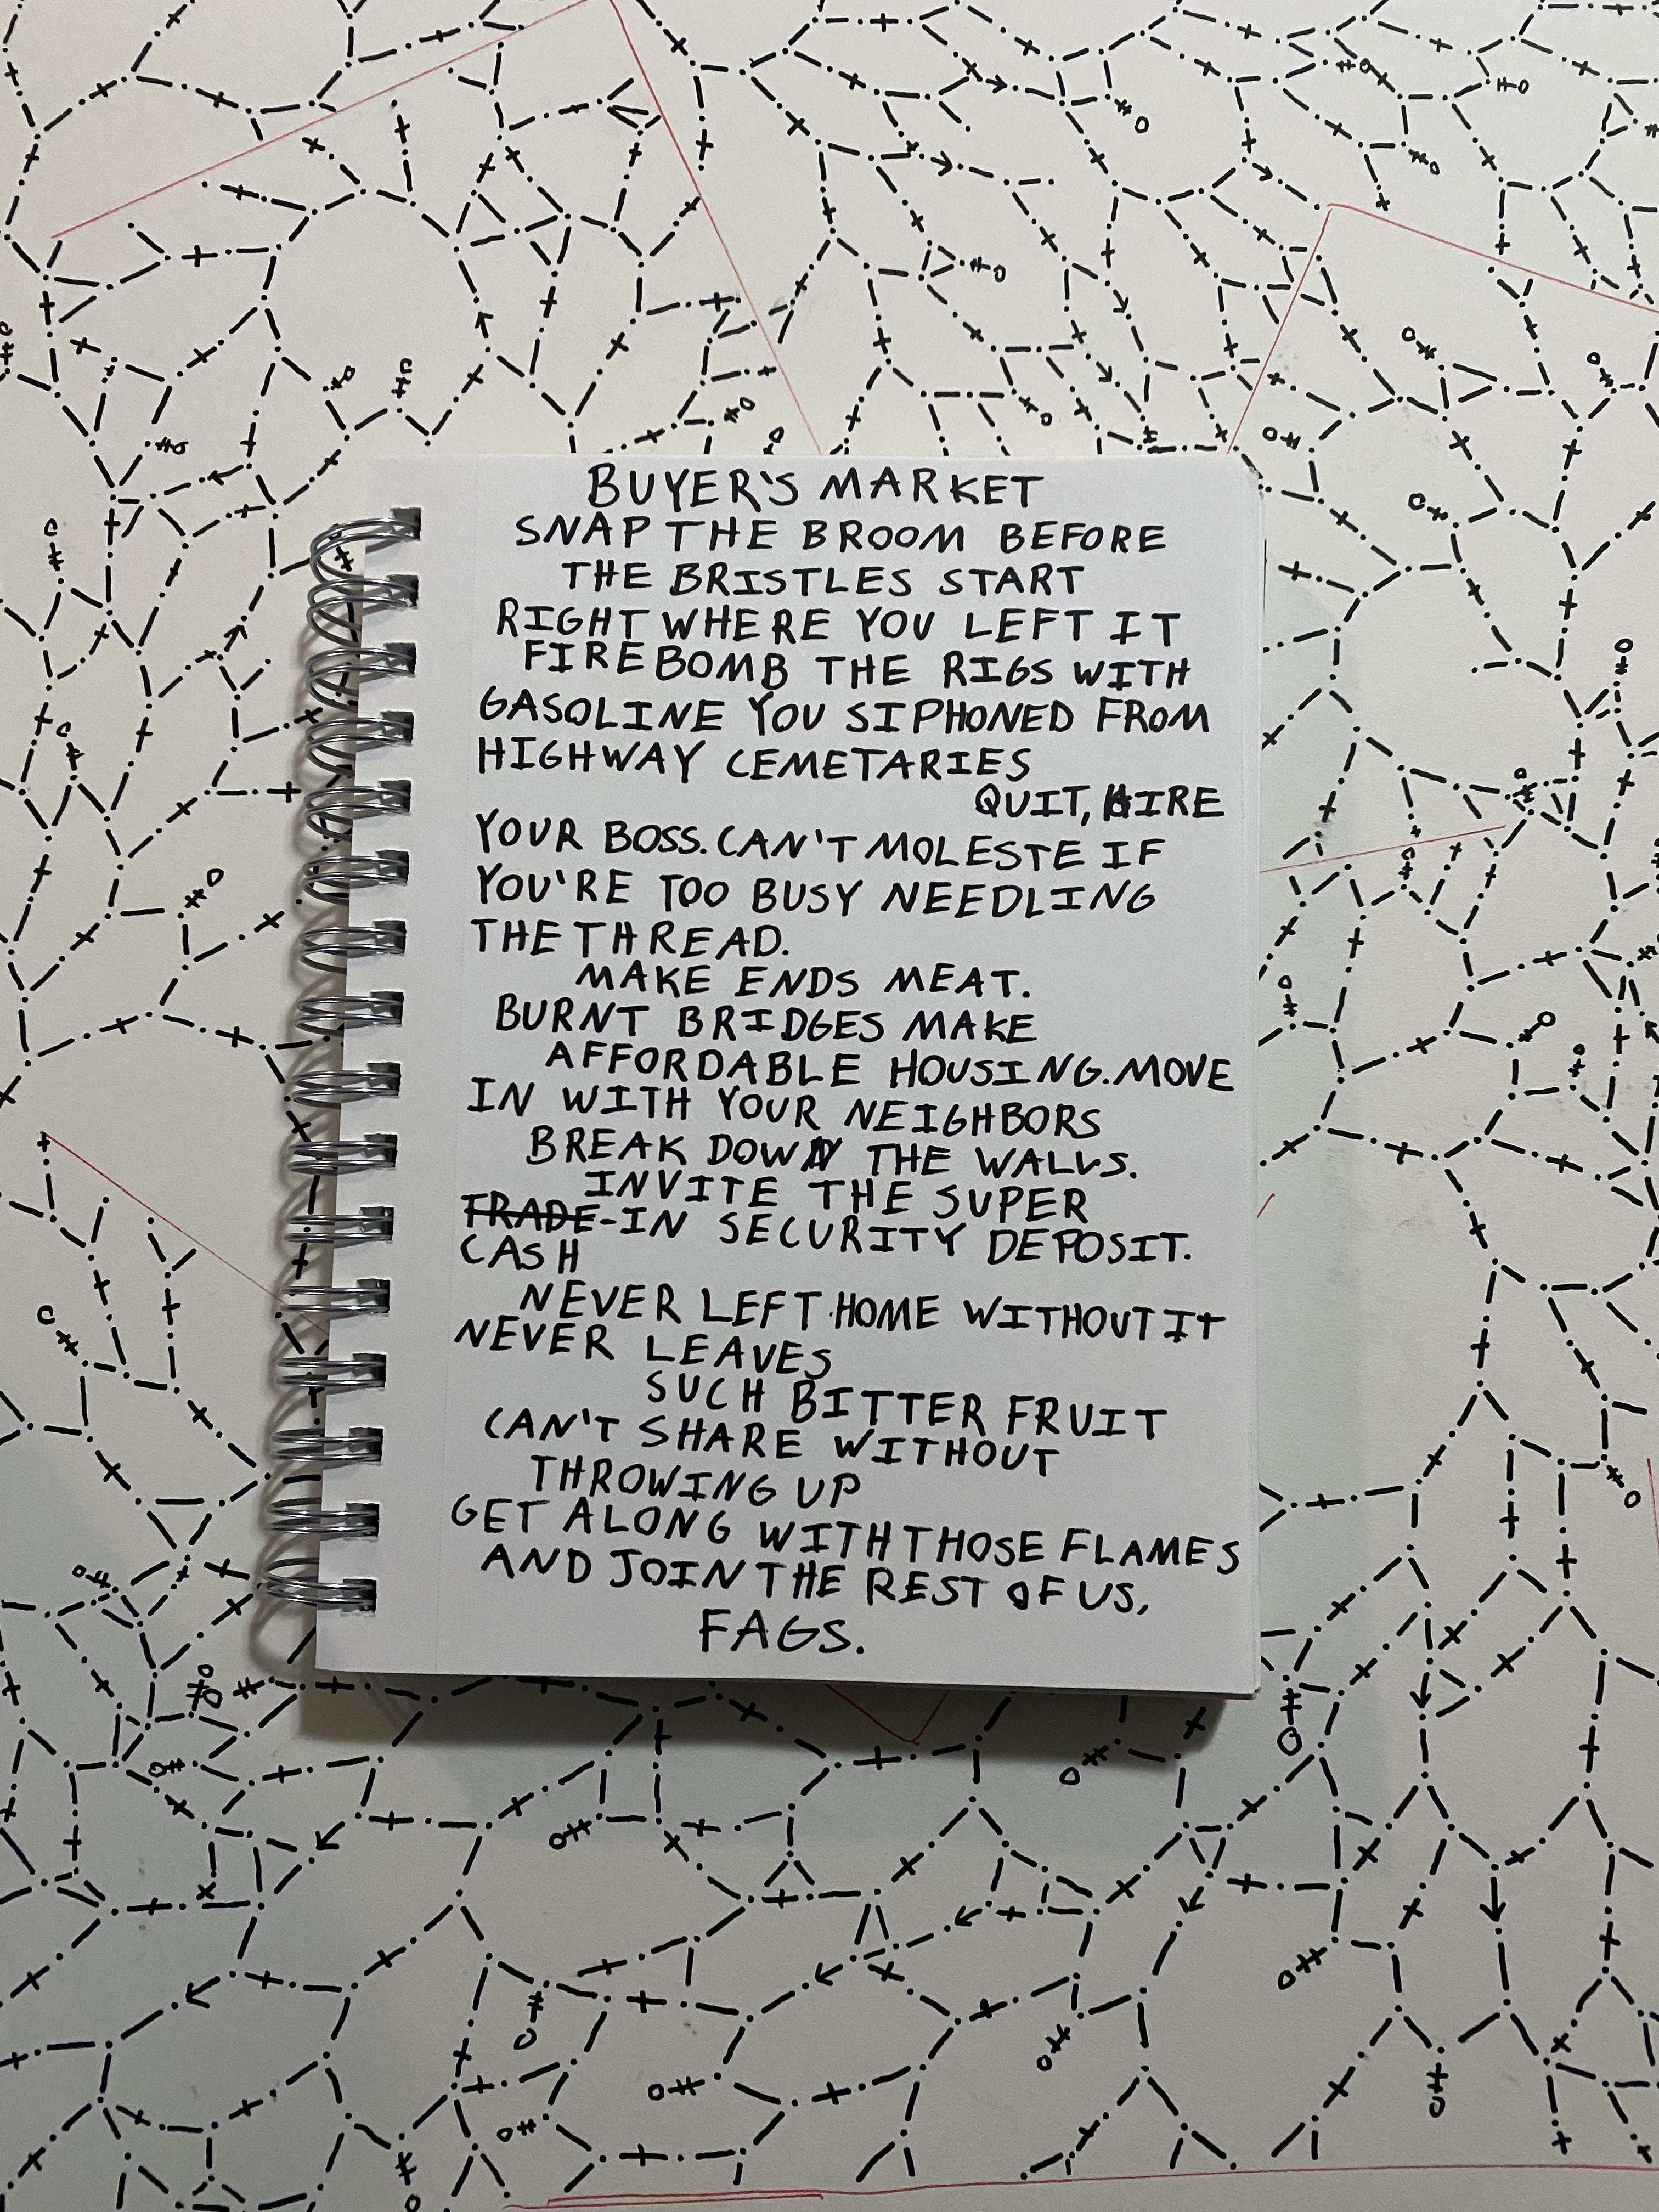 BUYER'S MARKET
SNAP THE BROOM BEFORE
THE BRISTLES START
RIGHT WHERE YOU LEFT IT
FIREBOMB THE RIGS WITH
GASOLINE YOU SIPHONED FROM
HIGHWAY CEMETARIES
QUIT, HIRE
YOUR BOSS. CAN'T MOLESTE IF
YOU'RE TOO BUSY NEEDLING
THE THREAD.
MAKE ENDS MEAT.
BURNT BRIDGES MAKE
AFFORDABLE HOUSING. MOVE
IN WITH YOUR NEIGHBORS
BREAK DOWN THE WALLS.
INVITE THE SUPER
TRADE-IN SECURITY DEPOSIT.
CASH
NEVER LEFT HOME WITHOUT IT
NEVER LEAVES
SUCH BITTER FRUIT
CAN'T SHARE WITHOUT
THROWING UP
GET ALONG WITH THOSE FLAMES
AND JOIN THE REST OF US,
FAGS.